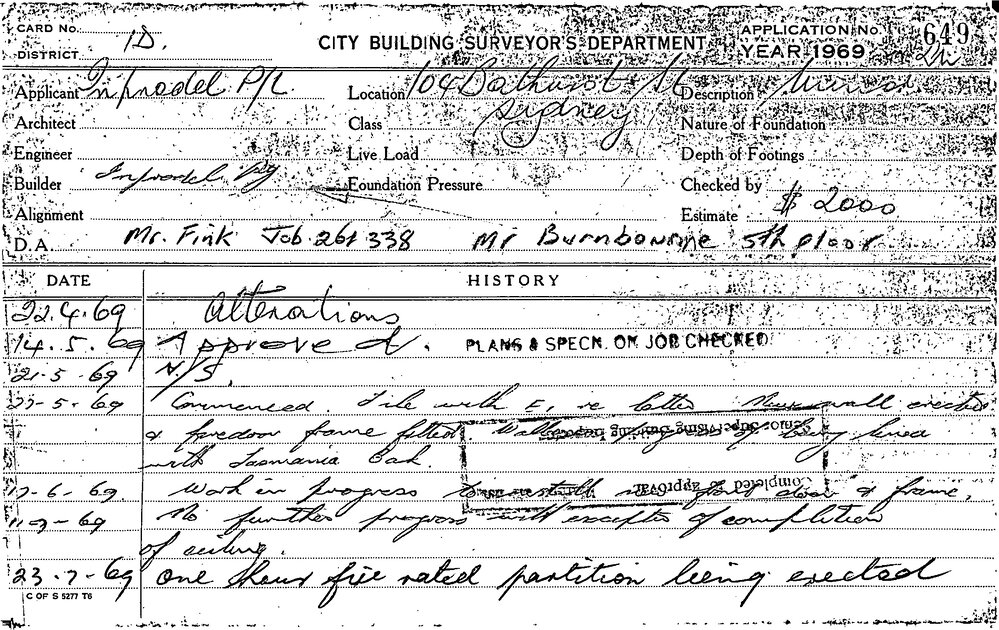 CARD No. 1D. CITY BUILDING SURVEYOR'S DEPARTMENT APPLICATION No. 649
DISTRICT YEAR 1969
Applicant Inprodel P/L Location 104 Bathurst St Description
Architect Class Sydney Nature of Foundation
Engineer Live Load Depth of Footings
Builder Inprodel P/L Foundation Pressure Checked by
Alignment Estimate $ 2000
D.A. Mr. Fink Job 261 338 Mr Burnbourne 5th floor
DATE HISTORY
22.4.69 Alterations
14.5.69 Approved. PLANS & SPECN. ON JOB CHECKED
21-5-69 N/S.
23-5-69 Commenced. File with E, re letter New wall erected
& firedoor frame fitted Walls in progress of being lined
with Tasmania Oak.
Senior Supervising Building Inspector
Completed to approval
17-6-69 Work in progress to install door & frame.
No further progress with of completion
of ceiling.
23-7-69 One hour fire rated partition being erected
C OF S 5277 T6